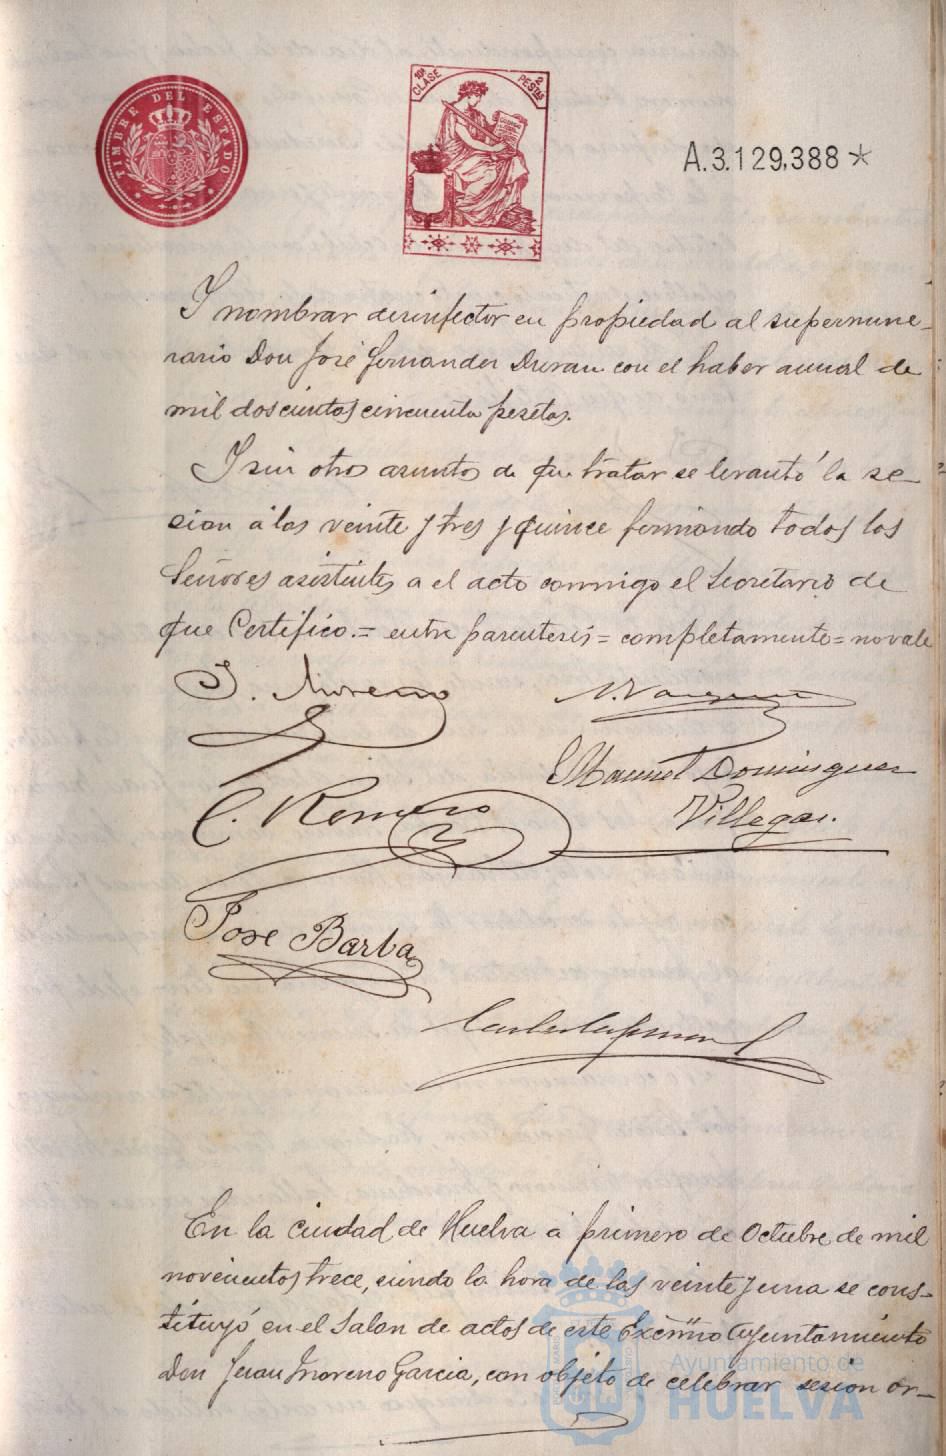 TIMBRE DEL ESTADO
10ª CLASE
2 PESETAS
A.3.129,388*
Y nombrar desinfector en propiedad al supernume-
rario Don José Fernandez Duran con el haber anual de
mil doscientos cincuenta pesetas.
Y sin otros asuntos de que tratar se levantó la se-
sion á las veinte y tres y quince firmando todos los
Señores asistentes a el acto conmigo el Secretario de
que Certifico.= entre parentesis = completamente = no vale
J. Moreno
Manuel Dominguez
Villegas.
C. Romero
Jose Barba
En la ciudad de Huelva á primero de Octubre de mil
novecientos trece, siendo la hora de las veinte y una se cons-
tituyó en el Salon de actos de este Excmo Ayuntamiento
Don Juan Moreno Garcia, con objeto de celebrar sesion or-
Ayuntamiento de
HUELVA